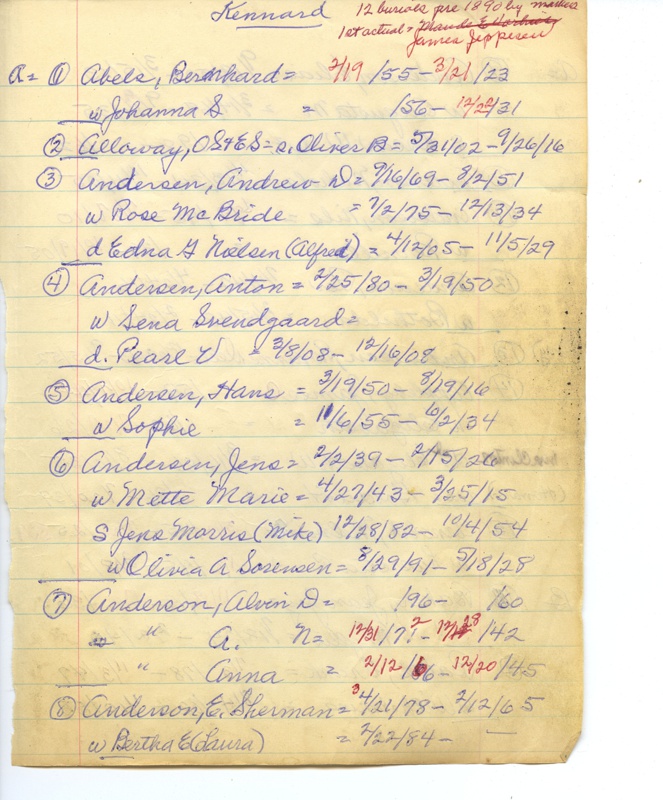 Kennard
12 burials pre 1890 by markers
1st actual = Maude E
James Jeppesen
A = ① Abels, Bernhard = 2/19/55 - 3/21/23
w Johanna S = /56 - 12/22/31
② Alloway, OS & ES = s. Oliver B = 5/31/02 - 9/26/16
③ Andersen, Andrew D = 9/16/69 - 8/2/51
w Rose McBride = 7/2/75 - 12/13/34
d Edna G Nielsen (Alfred) = 4/12/05 - 11/5/29
④ Andersen, Anton = 2/25/80 - 3/19/50
w Sena Svendgaard =
d. Pearl V = 3/8/08 - 12/16/08
⑤ Andersen, Hans = 3/19/50 - 8/19/16
w Sophie = 11/6/55 - 6/2/34
⑥ Andersen, Jens = 2/2/39 - 2/15/26
w Mette Marie = 4/27/43 - 3/25/15
S Jens Morris (Mike) 12/28/82 - 10/4/54
w Olivia A Sorensen = 8/29/91 - 5/18/28
⑦ Anderson, Alvin D = /96 - /60
" A. N = 12/31/72 - /42
" Anna = 2/12/66 - 12/20/45
⑧ Anderson, E. Sherman = 4/21/78 - 2/12/65
w Bertha E (Laura) = 2/22/84 - —